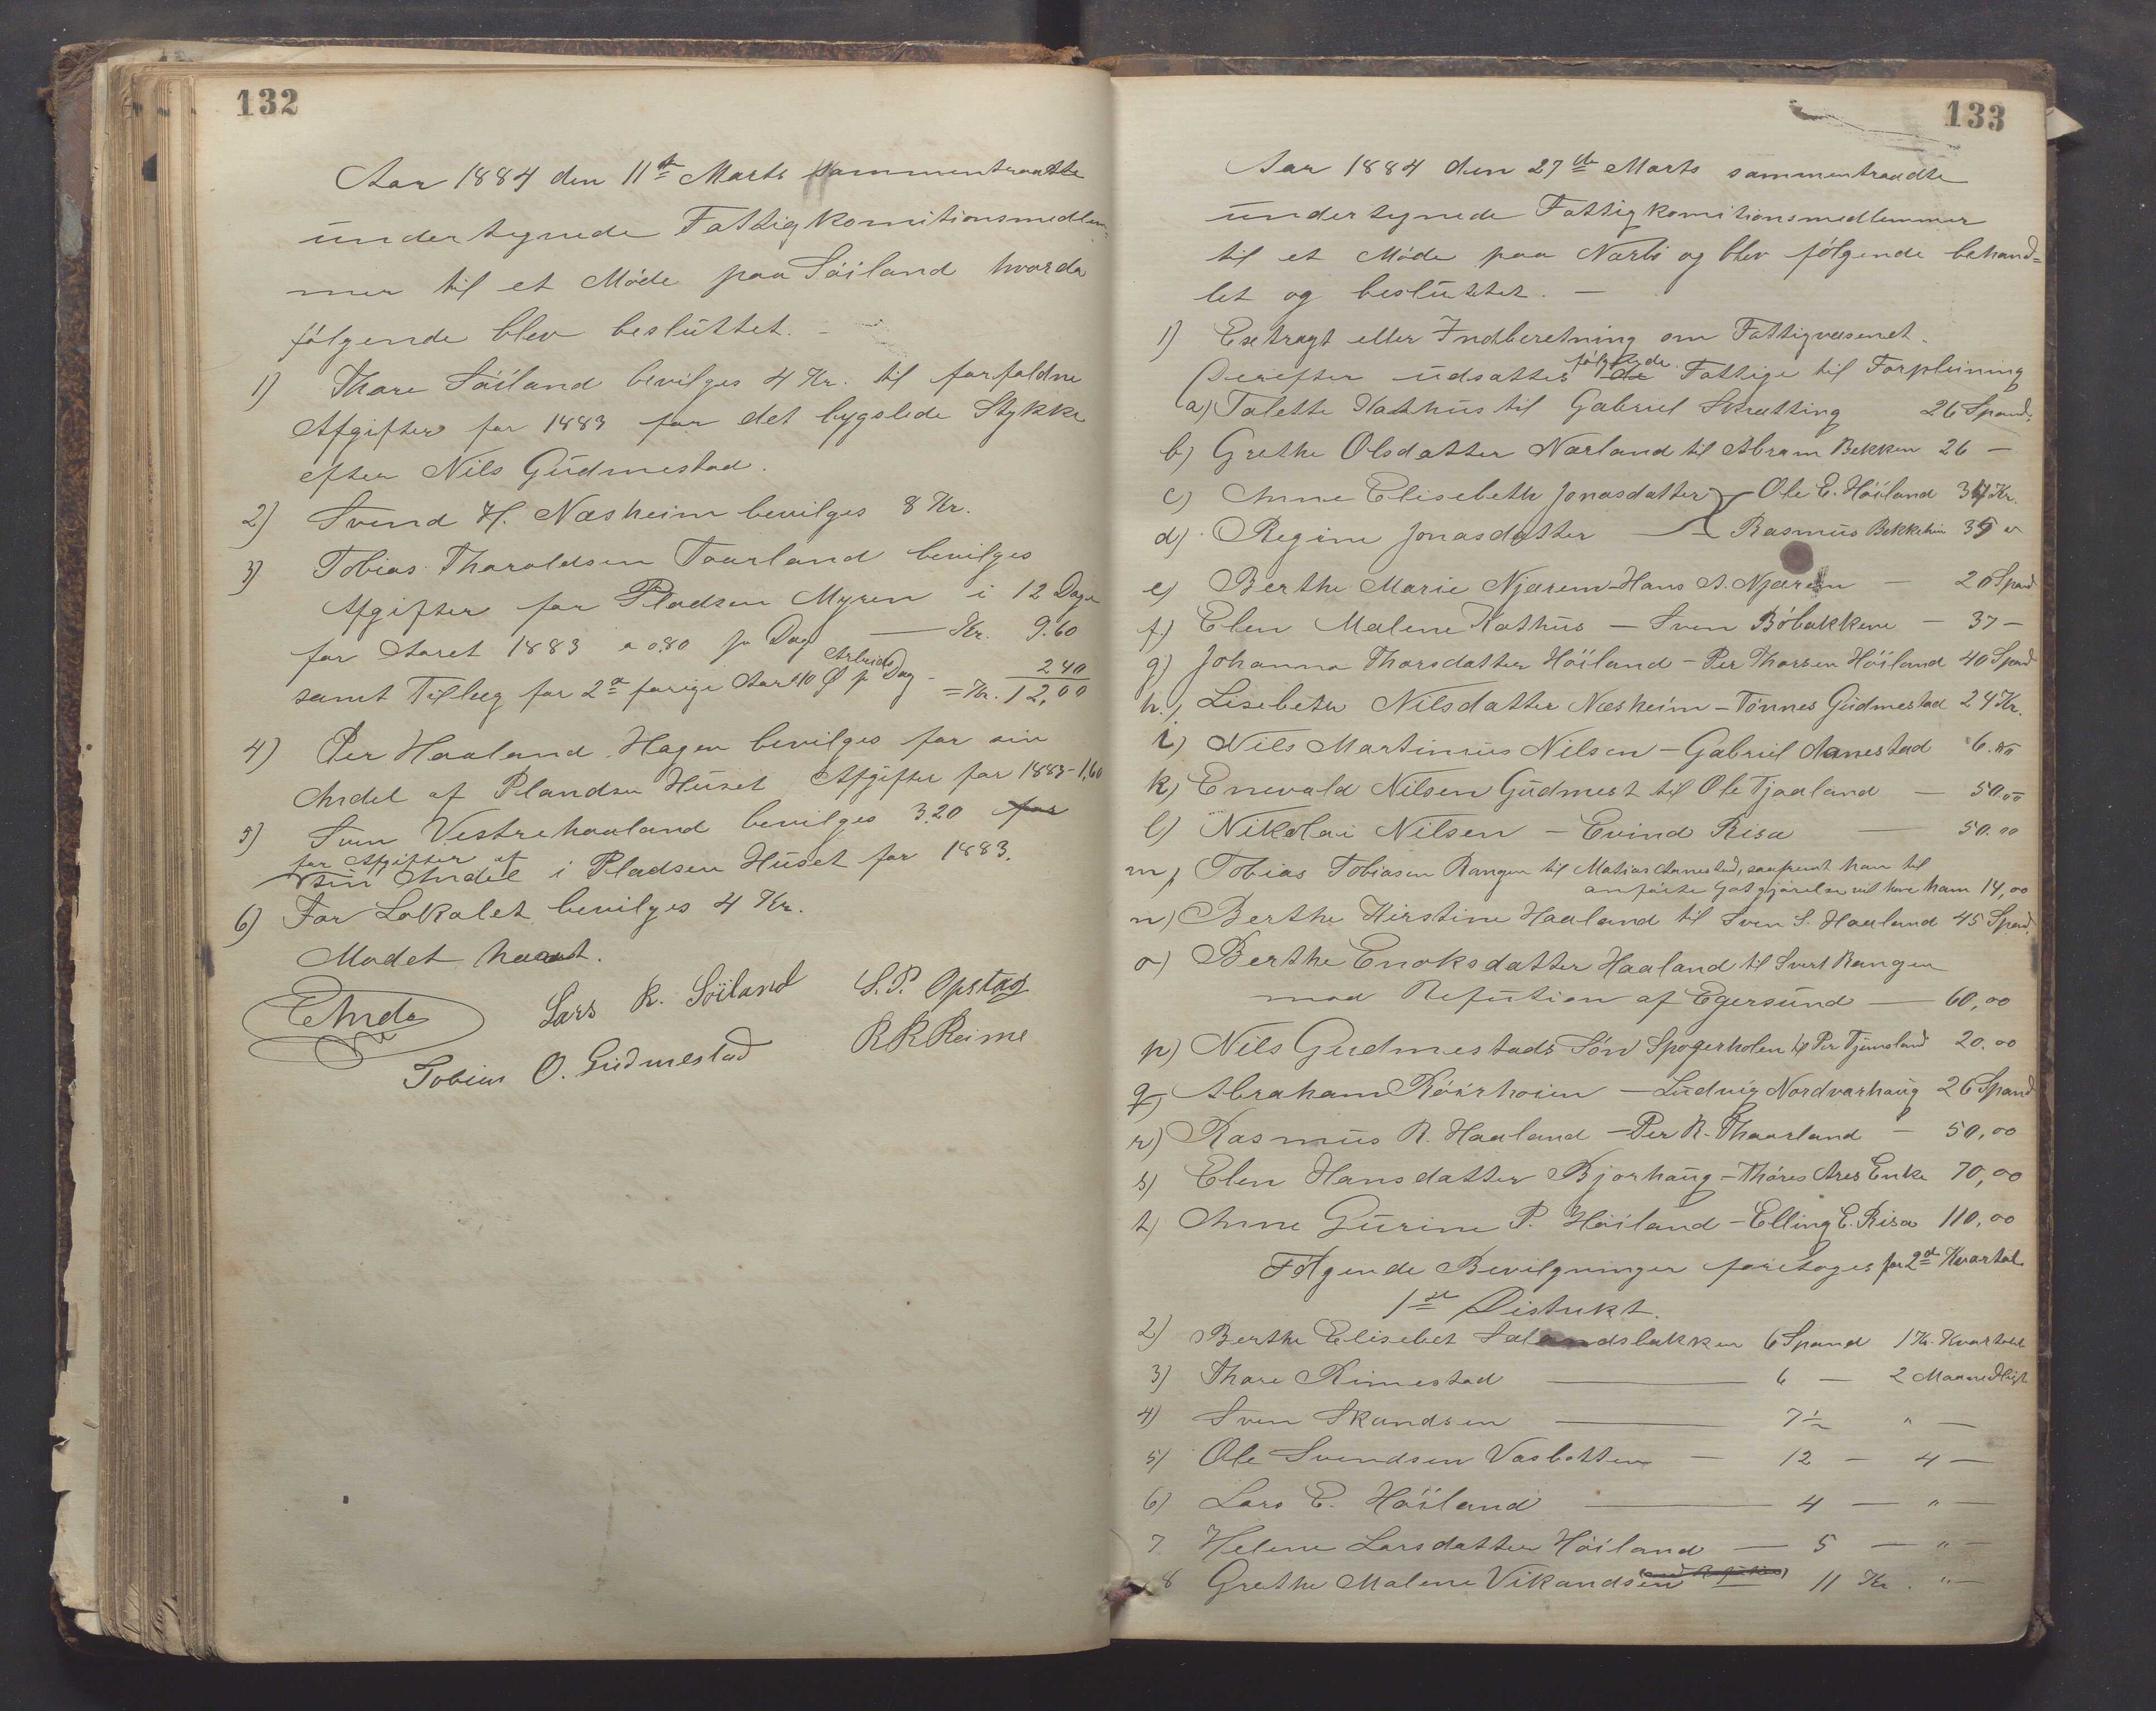 132
Aar 1884 den 11te Marts sammentraadte
undertegnede Fattigkomitionsmedlem-
mer til et Möde paa Söiland hvorda
fölgende blev besluttet. -
1) Thore Söiland bevilges 4 Kr. til forfaldne
Afgifter for 1883 for det bygslede Stykke
efter Nils Gudmestad.
2) Svend H. Næsheim bevilges 8 Kr.
3) Tobias Tharaldsen Taarland bevilges
Afgifter for Pladsen Myren i 12 Dage
for Aaret 1883 a 0.80 pr Dag — Kr. 9.60
samt Tillæg for 2de forige Aar 10 Ø pr Arbeids Dag - 2 40
= Kr. 12,00
4) Per Haaland Hagen bevilges for sin
Andel af Plandsen Huset Afgifter for 1883 - 1,60
5) Sven Vestrehaaland bevilges 3.20 for
for Afgifter af
sin Andel i Pladsen Huset for 1883.
6) For Lokalet bevilges 4 Kr.
Modet hævet.
Lars R. Söiland S. P. Opstad
Tobias O. Gudmestad RR Reime
133
Aar 1884 den 27de Marts sammentraadte
undertegnede Fattigkomitionsmedlemmer
til et Möde paa Nærbö og blev fölgende behand=
let og besluttet. —
1) Extragt eller Indberetning om Fattigvæsenet.
Derefter udsattes fölgende de Fattige til Forpleining
a) Talette Kathus til Gabriel Skrætting 26 Spand.
b) Grethe Olsdatter Nærland til Abram Bekken 26 —
c) Anne Elisebeth Jonasdatter — Ole E. Höiland 34 Kr.
d) Regine Jonasdatter — Rasmus Bekkehein 35 "
e) Berthe Marie Njærem - Hans A. Njærem — 20 Spand
f) Elen Malene Kathus — Sven Böbakkene — 37 —
g) Johanna Thorsdatter Höiland - Per Thorsen Höiland 40 Spand
h.) Lisebeth Nilsdatter Næsheim - Tönnes Gudmestad 24 Kr.
i) Nils Martinius Nilsen - Gabriel Aanestad 6.00
k) Enevald Nilsen Gudmest til Ole Tjaaland — 50.00
l) Nikolai Nilsen - Evind Risa — 50.00
m) Tobias Tobiasen Rangen til Matias Aanestad, saafremt han til
anförte Godtgjörelse vil have ham 14,00
n) Berthe Kirstine Haaland til Sven S. Haaland 45 Spand.
o) Berthe Enoksdatter Haaland til Sivert Rangen
mod Refution af Egersund — 60,00
p) Nils Gudmestads Sön til Per Tjemsland 20.00
q) Abraham Röirhoien — Ludvig Nordvarhaug 26 Spand
r) Rasmus R. Haaland - Per R. Thaarland — 50,00
s) Elen Hansdatter Bjorhaug - Thöres Ares Enke 70,00
t) Anne Gurine P. Höiland - Elling E. Risa 110,00
Fölgende Bevilgninger foretoges for 2det Kvartal
1ste Distrikt.
2) Berthe Elisebet Salandsbakken 6 Spand 1 Kr. Kvartalet
3) Thore Rimestad — 6 — 2 Maanedligt
4) Sven Skandsen — 7½ " —
5) Ole Svendsen Vasbotten — 12 — 4 —
6) Lars E. Höiland — 4 — " —
7. Helene Larsdatter Höiland — 5 — " —
8 Grethe Malene Vikandsen 11 Kr. " —